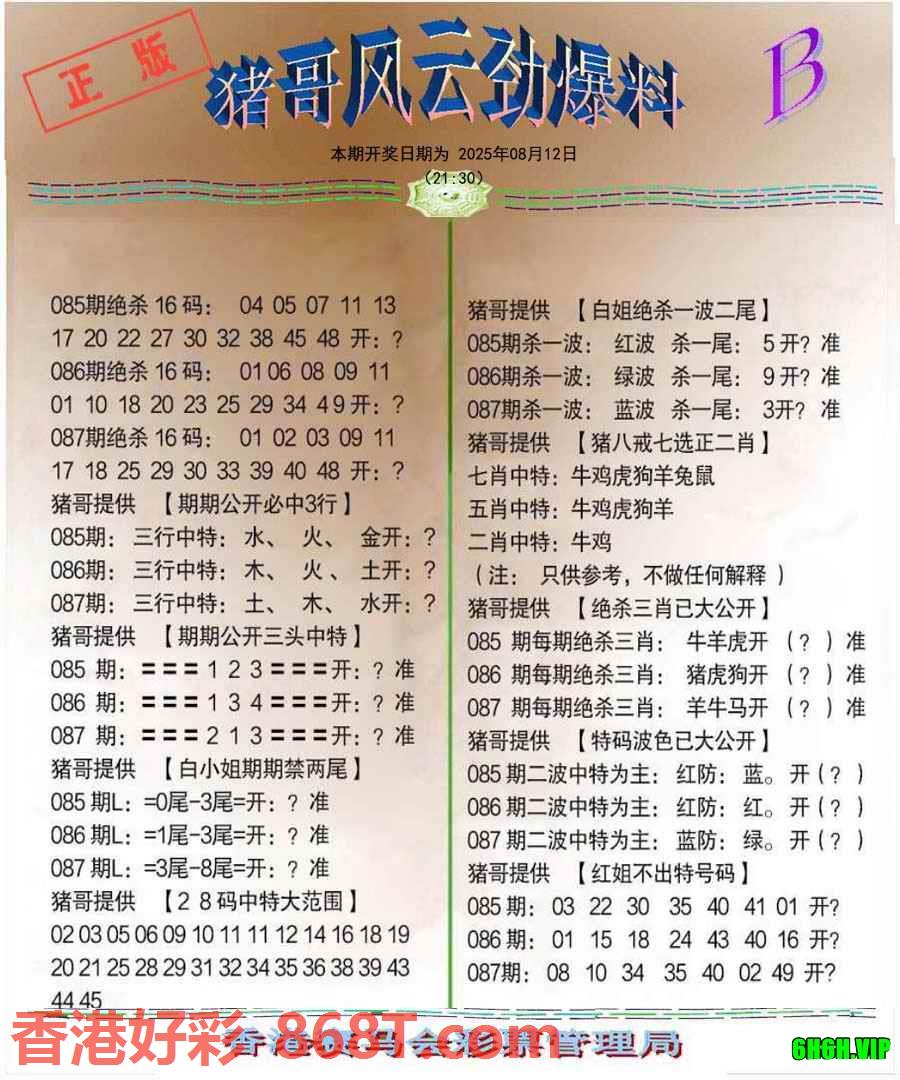 正版
猪哥风云劲爆料
B
本期开奖日期为 2025年08月12日
(21:30)
085期绝杀 16 码： 04 05 07 11 13
17 20 22 27 30 32 38 45 48 开：?
086期绝杀 16 码： 01 06 08 09 11
01 10 18 20 23 25 29 34 49 开：?
087期绝杀 16 码： 01 02 03 09 11
17 18 25 29 30 33 39 40 48 开：?
猪哥提供 【期期公开必中3行】
085期： 三行中特： 水、 火、 金开：?
086期： 三行中特： 木、 火、 土开：?
087期： 三行中特： 土、 木、 水开：?
猪哥提供 【期期公开三头中特】
085 期：=== 1 2 3 ===开：? 准
086 期：=== 1 3 4 ===开：? 准
087 期：=== 2 1 3 ===开：? 准
猪哥提供 【白小姐期期禁两尾】
085 期L：=0尾-3尾=开：? 准
086 期L：=1尾-3尾=开：? 准
087 期L：=3尾-8尾=开：? 准
猪哥提供 【2 8 码中特大范围】
02 03 05 06 09 10 11 11 12 14 16 18 19
20 21 25 28 29 31 32 34 35 36 38 39 43
44 45
猪哥提供 【白姐绝杀一波二尾】
085期杀一波： 红波 杀一尾： 5 开? 准
086期杀一波： 绿波 杀一尾： 9 开? 准
087期杀一波： 蓝波 杀一尾： 3开? 准
猪哥提供 【猪八戒七选正二肖】
七肖中特：牛鸡虎狗羊兔鼠
五肖中特：牛鸡虎狗羊
二肖中特：牛鸡
（注： 只供参考，不做任何解释 ）
猪哥提供 【绝杀三肖已大公开】
085 期每期绝杀三肖： 牛羊虎开 （? ）准
086 期每期绝杀三肖： 猪虎狗开 （? ）准
087 期每期绝杀三肖： 羊牛马开 （? ）准
猪哥提供 【特码波色已大公开】
085 期二波中特为主：红防：蓝。开（? ）
086 期二波中特为主：红防：红。开（? ）
087 期二波中特为主：蓝防：绿。开（? ）
猪哥提供 【红姐不出特号码】
085 期： 03 22 30 35 40 41 01 开?
086 期： 01 15 18 24 43 40 16 开?
087期： 08 10 34 35 40 02 49 开?
香港好彩 868T.com
香港赛马会彩票管理局
6H6H.VIP